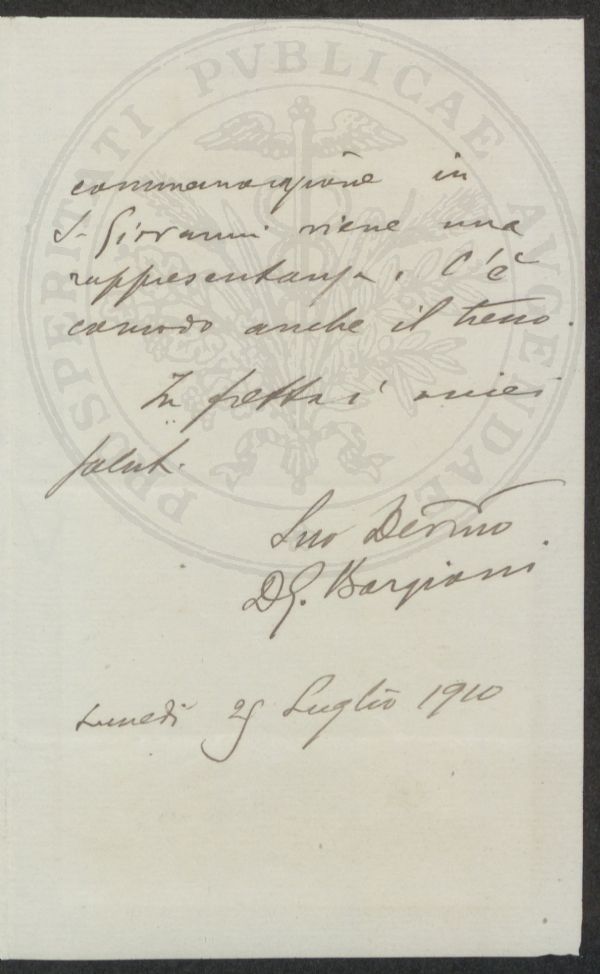 PROSPERITATI PVBLICAE AVGENDAE
commemorazione in
S. Giovanni viene una
rappresentanza. C'è
comodo anche il treno.
In fretta i miei
salut.
Suo Dev.mo
DG. Bargioni
Lunedì 25 Luglio 1910